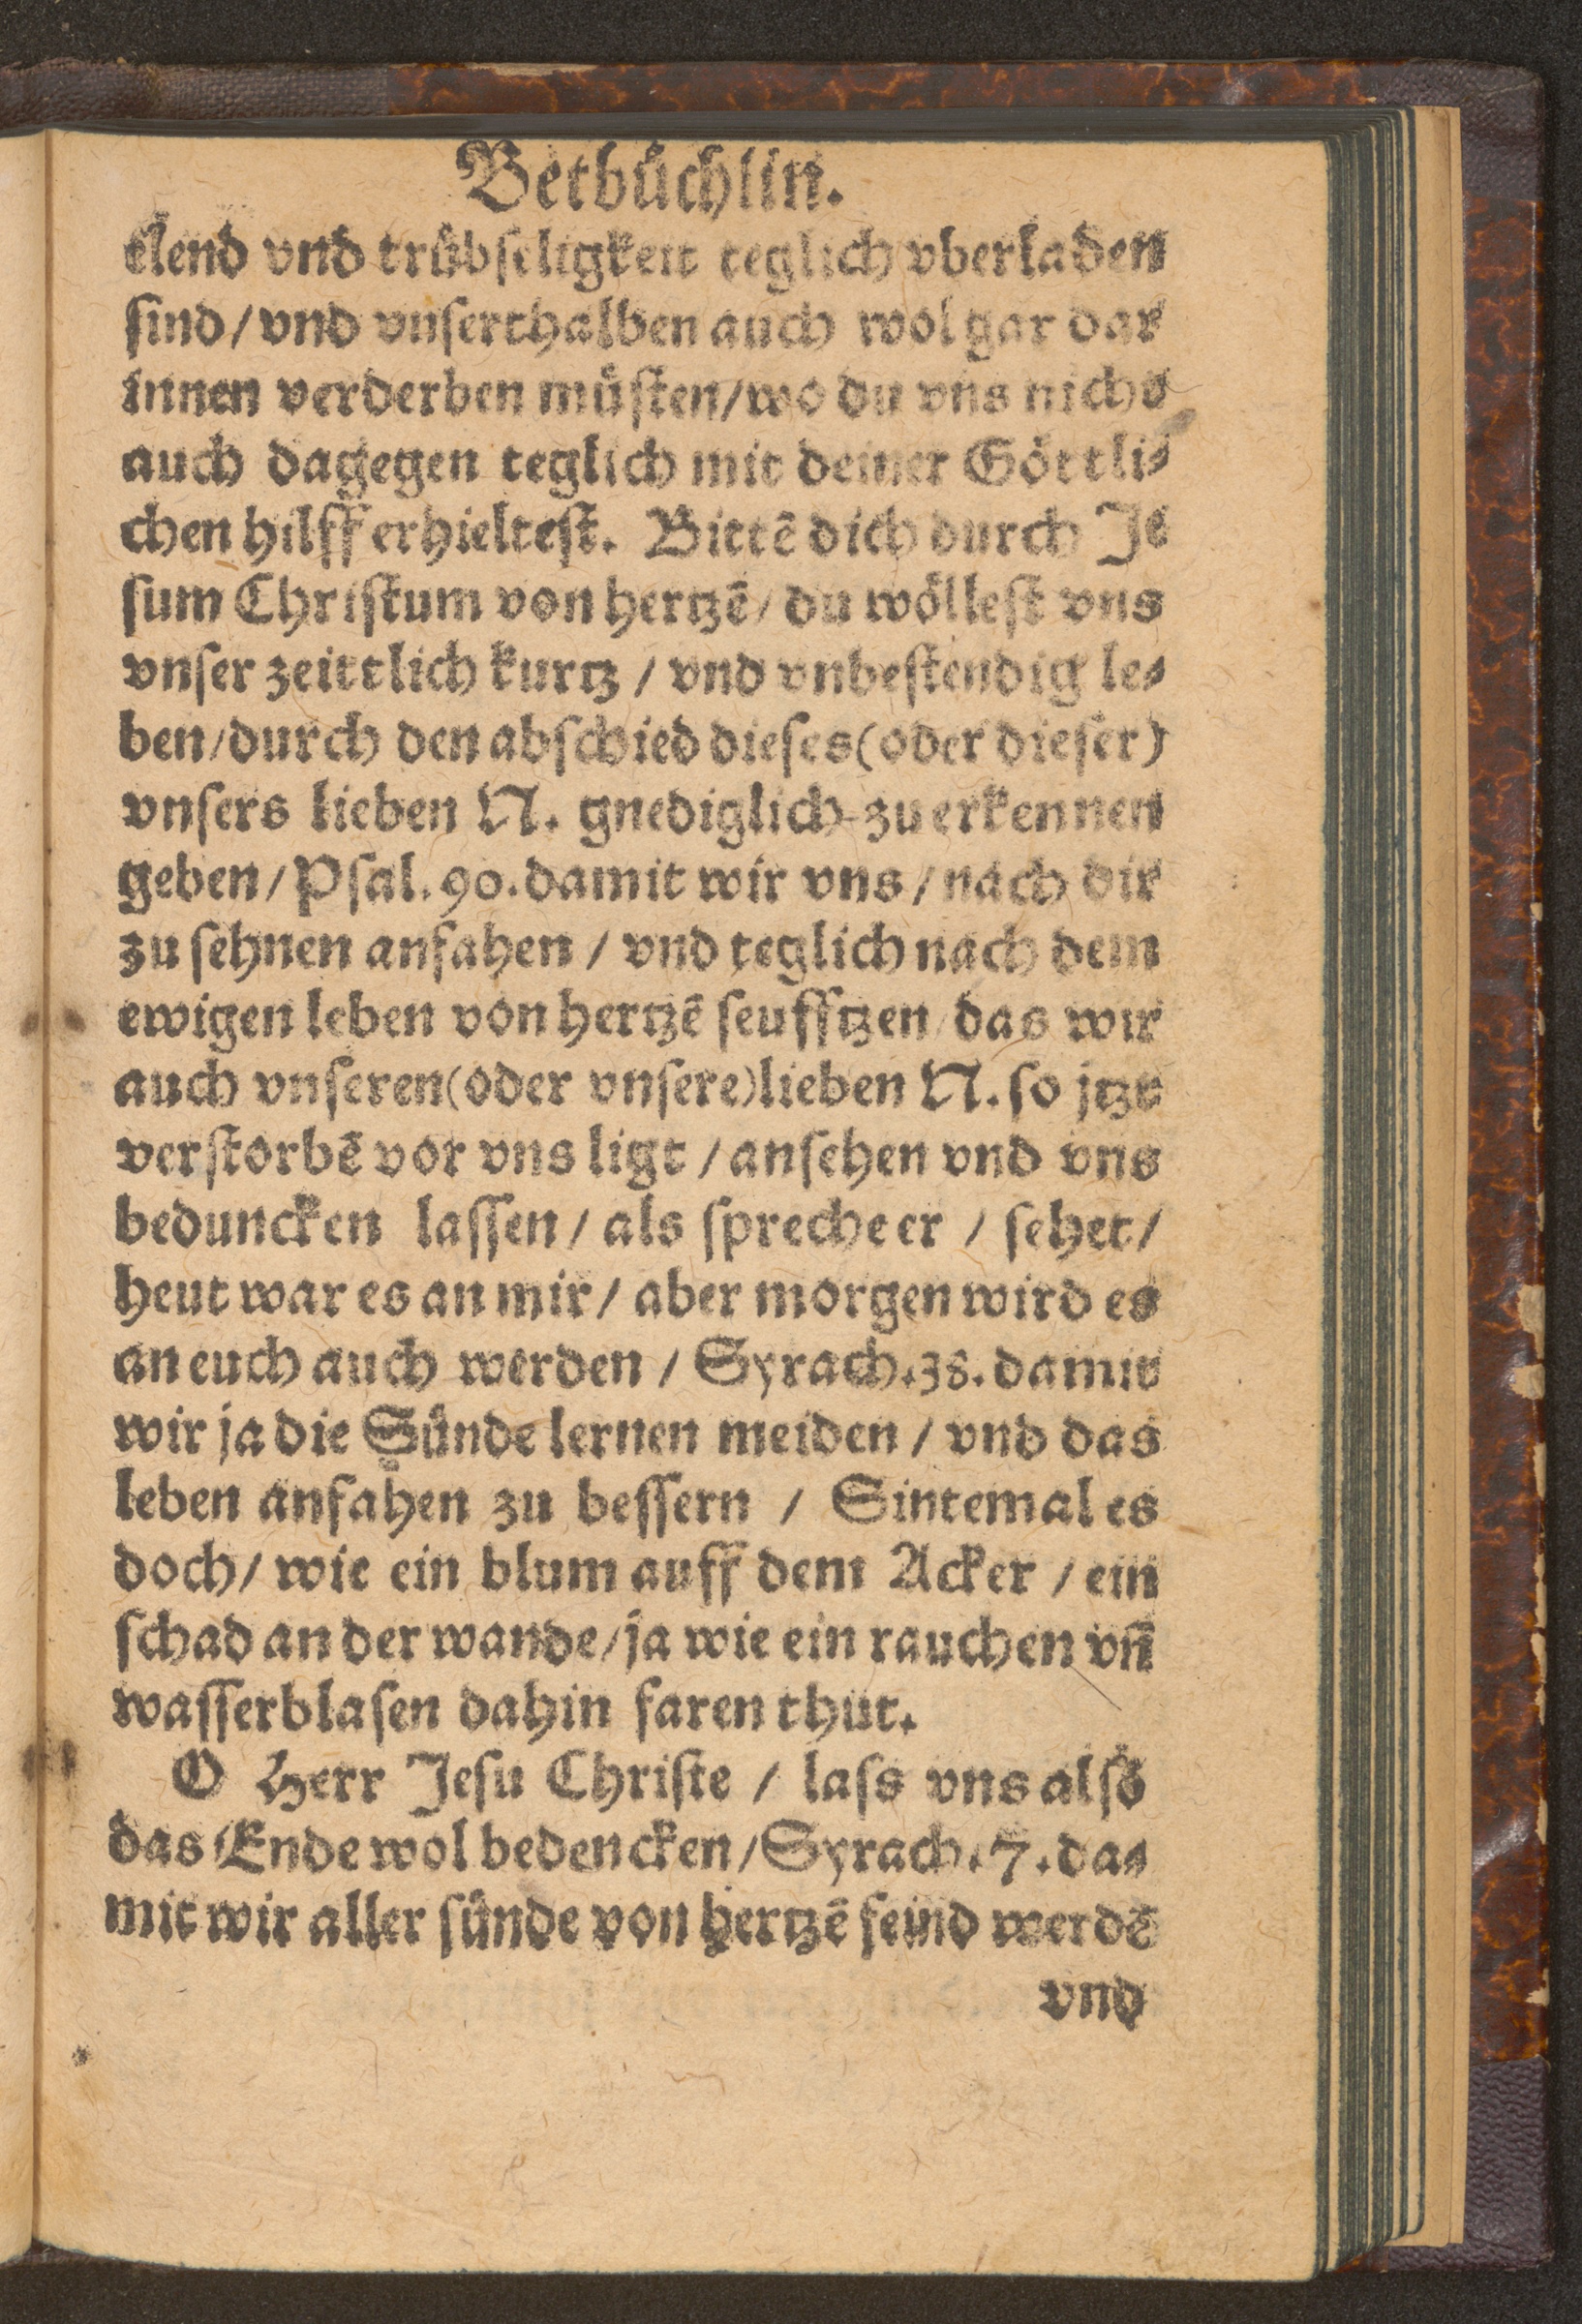 Betbuͤchlin.
elend vnd truͤbseligkeit teglich vberladen
sind / vnd vnserthalben auch wol gar dar
innen verderben muͤsten / wo du vns nicht
auch dagegen teglich mit deiner Goͤttli⸗
chen hilff erhieltest. Bittẽ dich durch Je
sum Christum von hertzẽ / du woͤllest vns
vnser zeittlich kurtz / vnd vnbestendig le⸗
ben / durch den abschied dieses (oder dieser)
vnsers lieben N. gnediglich zu erkennen
geben / Psal. 90. damit wir vns / nach dir
zu sehnen anfahen / vnd teglich nach dem
ewigen leben von hertzẽ seufftzen / das wir
auch vnseren (oder vnsere) lieben N. so jtzt
verstorbẽ vor vns ligt / ansehen vnd vns
beduncken lassen / als spreche er / sehet /
heut war es an mir / aber morgen wird es
an euch auch werden / Syrach. 38. damit
wir ja die Suͤnde lernen meiden / vnd das
leben anfahen zu bessern / Sintemal es
doch / wie ein blum auff dem Acker / ein
schad an der wande / ja wie ein rauchen vñ
wasserblasen dahin faren thut.
O Herr Jesu Christe / lass vns also
das Ende wol bedencken / Syrach. 7. da⸗
mit wir aller suͤnde von hertzẽ feind werdẽ
vnd